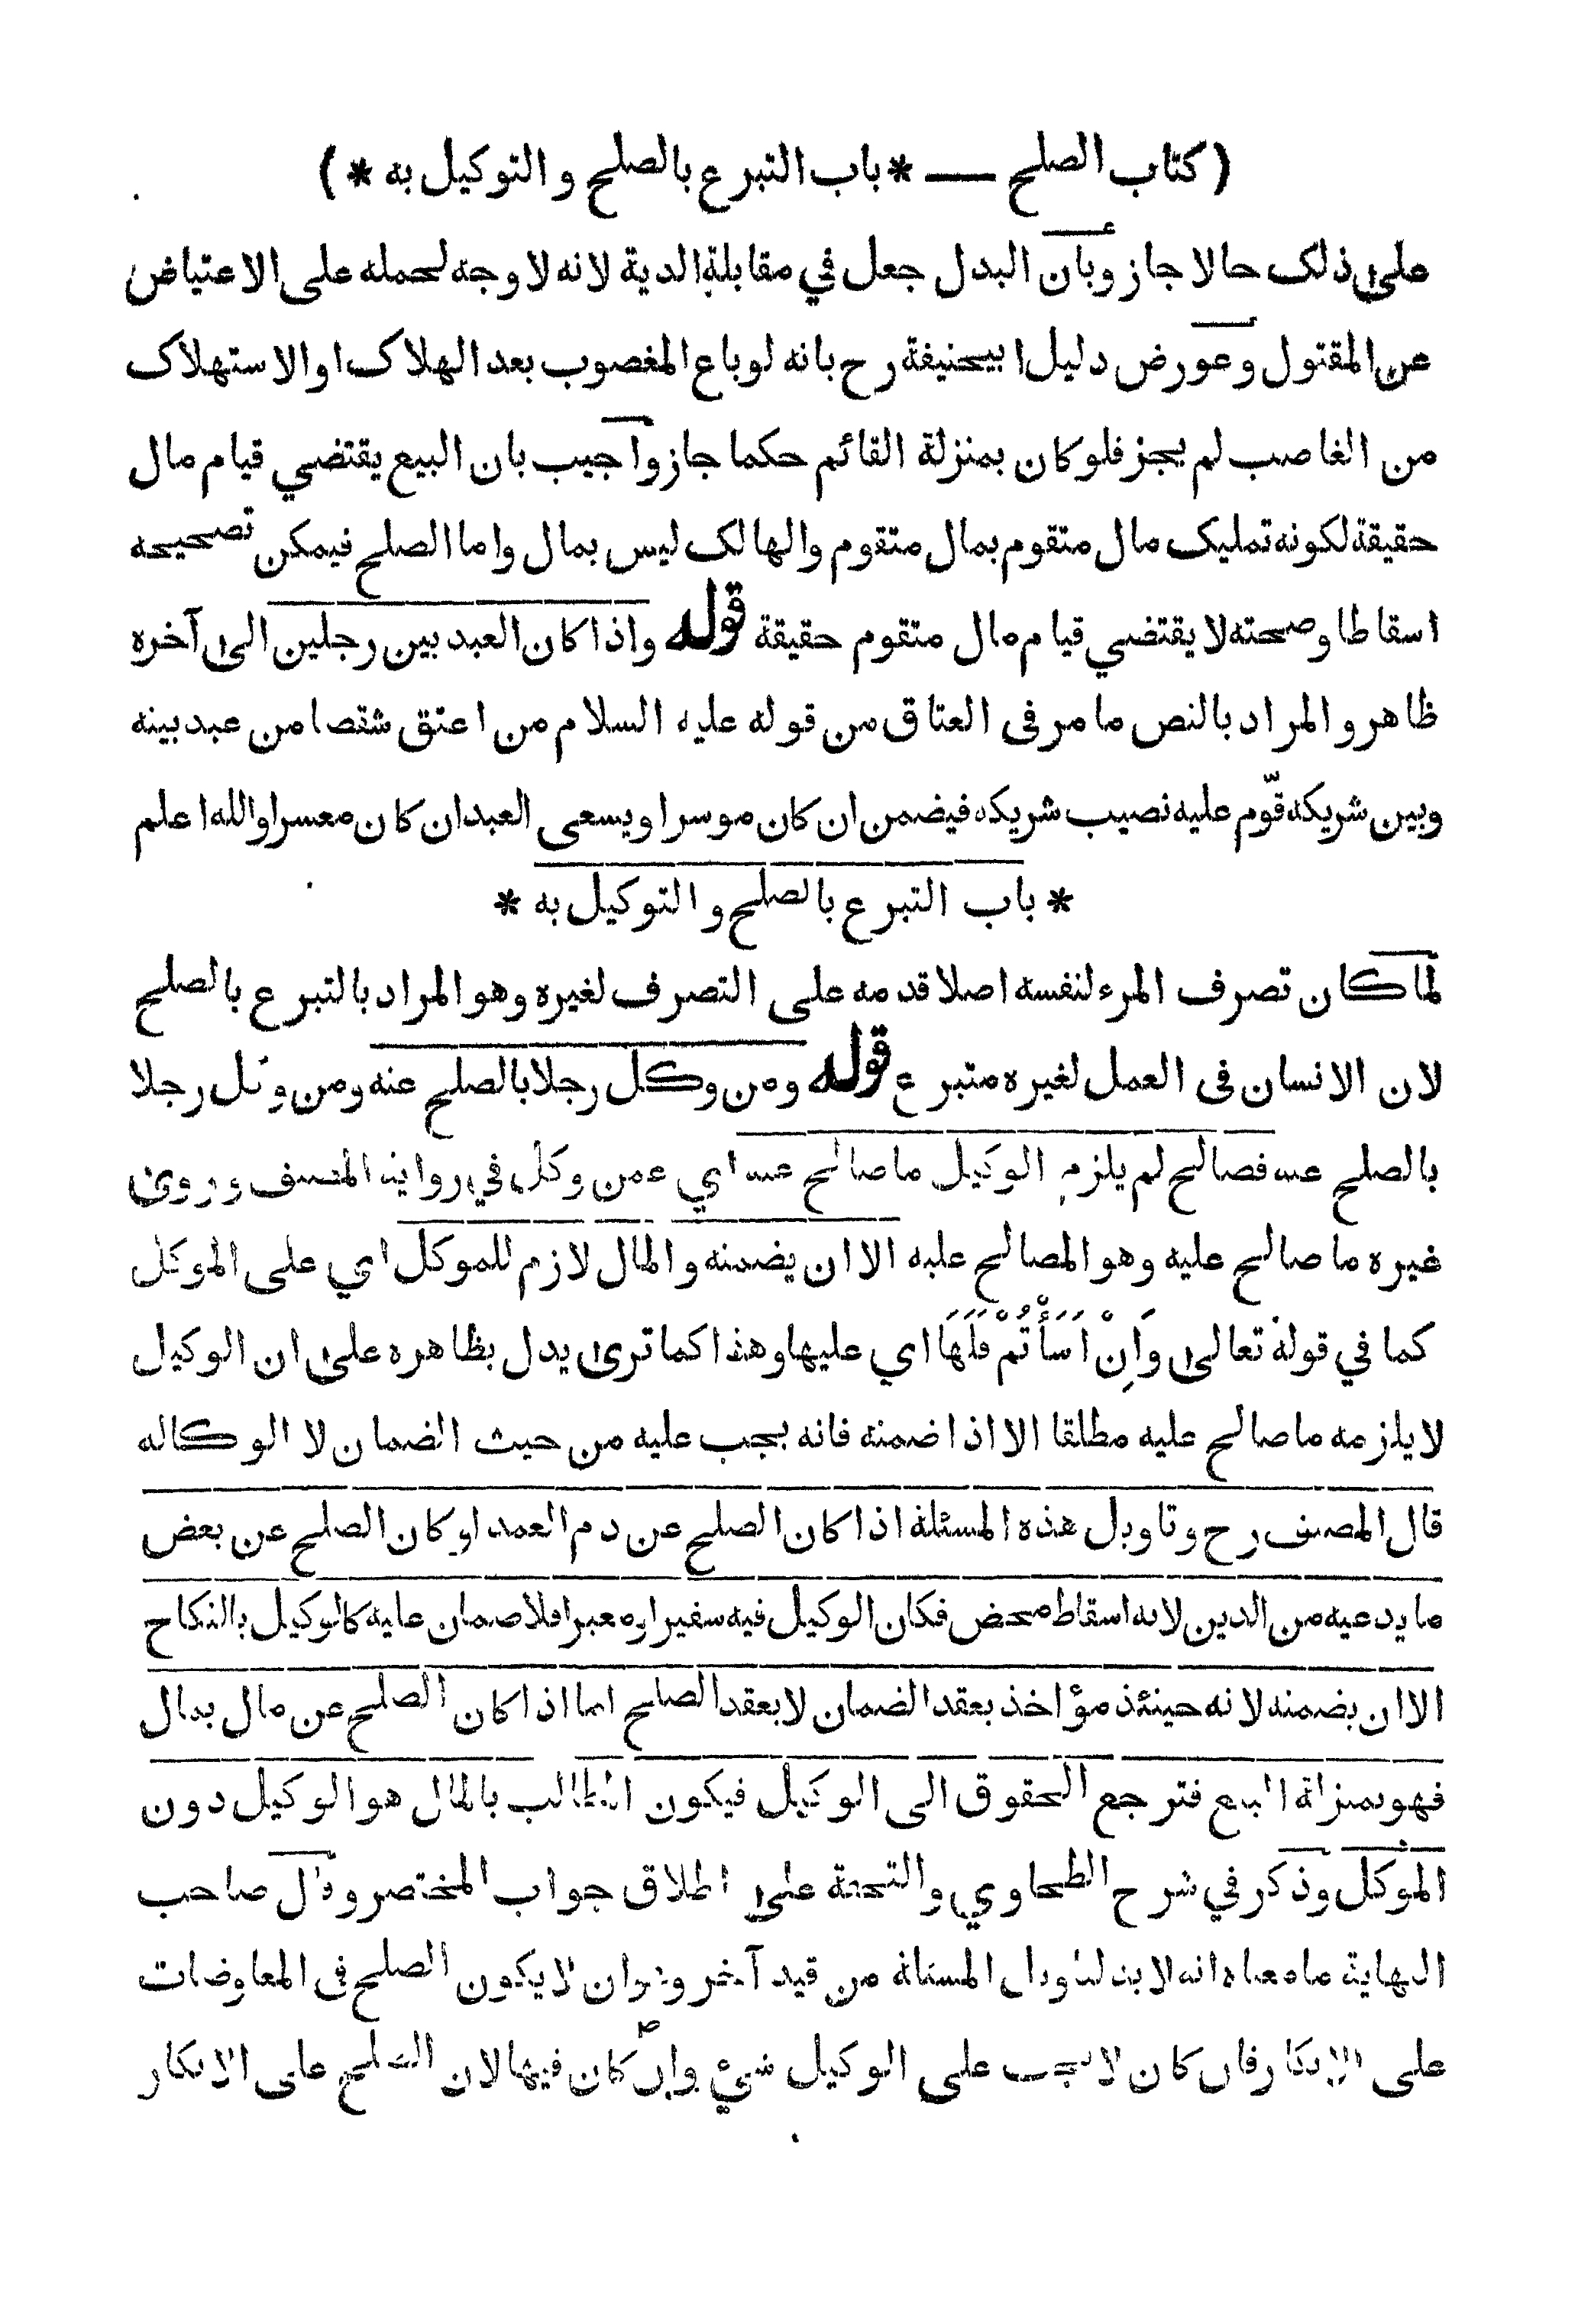 ( كتاب الصلح — * باب التبرع بالصلح والتوكيل به * )
على ذلك حالا جاز وبأن البدل جعل في مقابلة الدية لانه لا وجه لحمله على الاعتياض
عن المقتول وعورض دليل ابيحنيفة رح بانه لو باع المغصوب بعد الهلاك او الاستهلاك
من الغاصب لم يجز فلو كان بمنزلة القائم حكما جاز واجيب بان البيع يقتضي قيام مال
حقيقة لكونه تمليك مال متقوم بمال متقوم والهالك ليس بمال واما الصلح فيمكن تصحيحه
اسقاطا وصحته لا يقتضي قيام مال متقوم حقيقة قوله واذا كان العبد بين رجلين الى آخره
ظاهر والمراد بالنص ما مر فى العتاق من قوله عليه السلام من اعتق شقصا من عبد بينه
وبين شريكه قوّم عليه نصيب شريكه فيضمن ان كان موسرا ويسعى العبد ان كان معسرا والله اعلم
* باب التبرع بالصلح والتوكيل به *
لما كان تصرف المرء لنفسه اصلا قدمه على التصرف لغيره وهو المراد بالتبرع بالصلح
لان الانسان فى العمل لغيره متبرع قوله ومن وكل رجلا بالصلح عنه ومن وكل رجلا
بالصلح عنه فصالح لم يلزم الوكيل ما صالح عنه اي عمن وكل في رواية المصنف وروى
غيره ما صالح عليه وهو المصالح عليه الا ان يضمنه والمال لازم للموكل اي على الموكل
كما في قوله تعالى وَاِنْ اَسَأْتُمْ فَلَهَا اي عليها وهذا كما ترى يدل بظاهره على ان الوكيل
لا يلزمه ما صالح عليه مطلقا الا اذا ضمنه فانه يجب عليه من حيث الضمان لا الوكاله
قال المصنف رح وتاويل هذه المسئلة اذا كان الصلح عن دم العمد او كان الصلح عن بعض
ما يدعيه من الدين لانه اسقاط محض فكان الوكيل فيه سفيرا ومعبرا فلا ضمان عليه كالوكيل بالنكاح
الا ان يضمنه لانه حينئذ مؤاخذ بعقد الضمان لا بعقد الصلح اما اذا كان الصلح عن مال بمال
فهو بمنزلة البيع فترجع الحقوق الى الوكيل فيكون المطالب بالمال هو الوكيل دون
الموكل وذكر في شرح الطحاوي والتحفة على اطلاق جواب المختصر وقال صاحب
النهاية ما معناه انه لابد لتاويل المسئلة من قيد آخر وهو ان لا يكون الصلح فى المعاوضات
على الانكار فان كان لا يجب على الوكيل شيئ وان كان فيها لان الصلح على الانكار